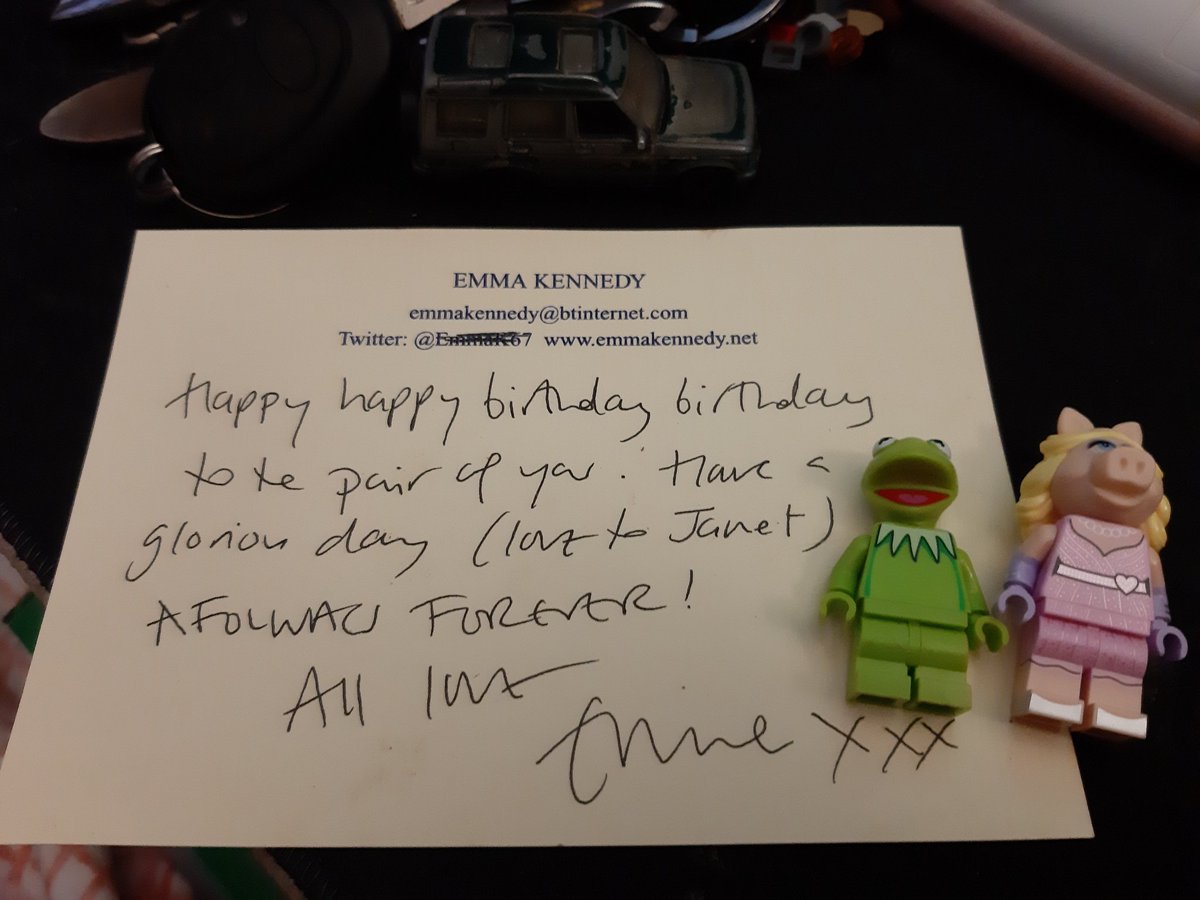 EMMA KENNEDY
emmakennedy@btinternet.com
Twitter: @EmmaK67 www.emmakennedy.net
Happy happy birthday birthday
to te pair of you. Have a
glorious day (love to Janet)
FOREVER!
All love
xxx